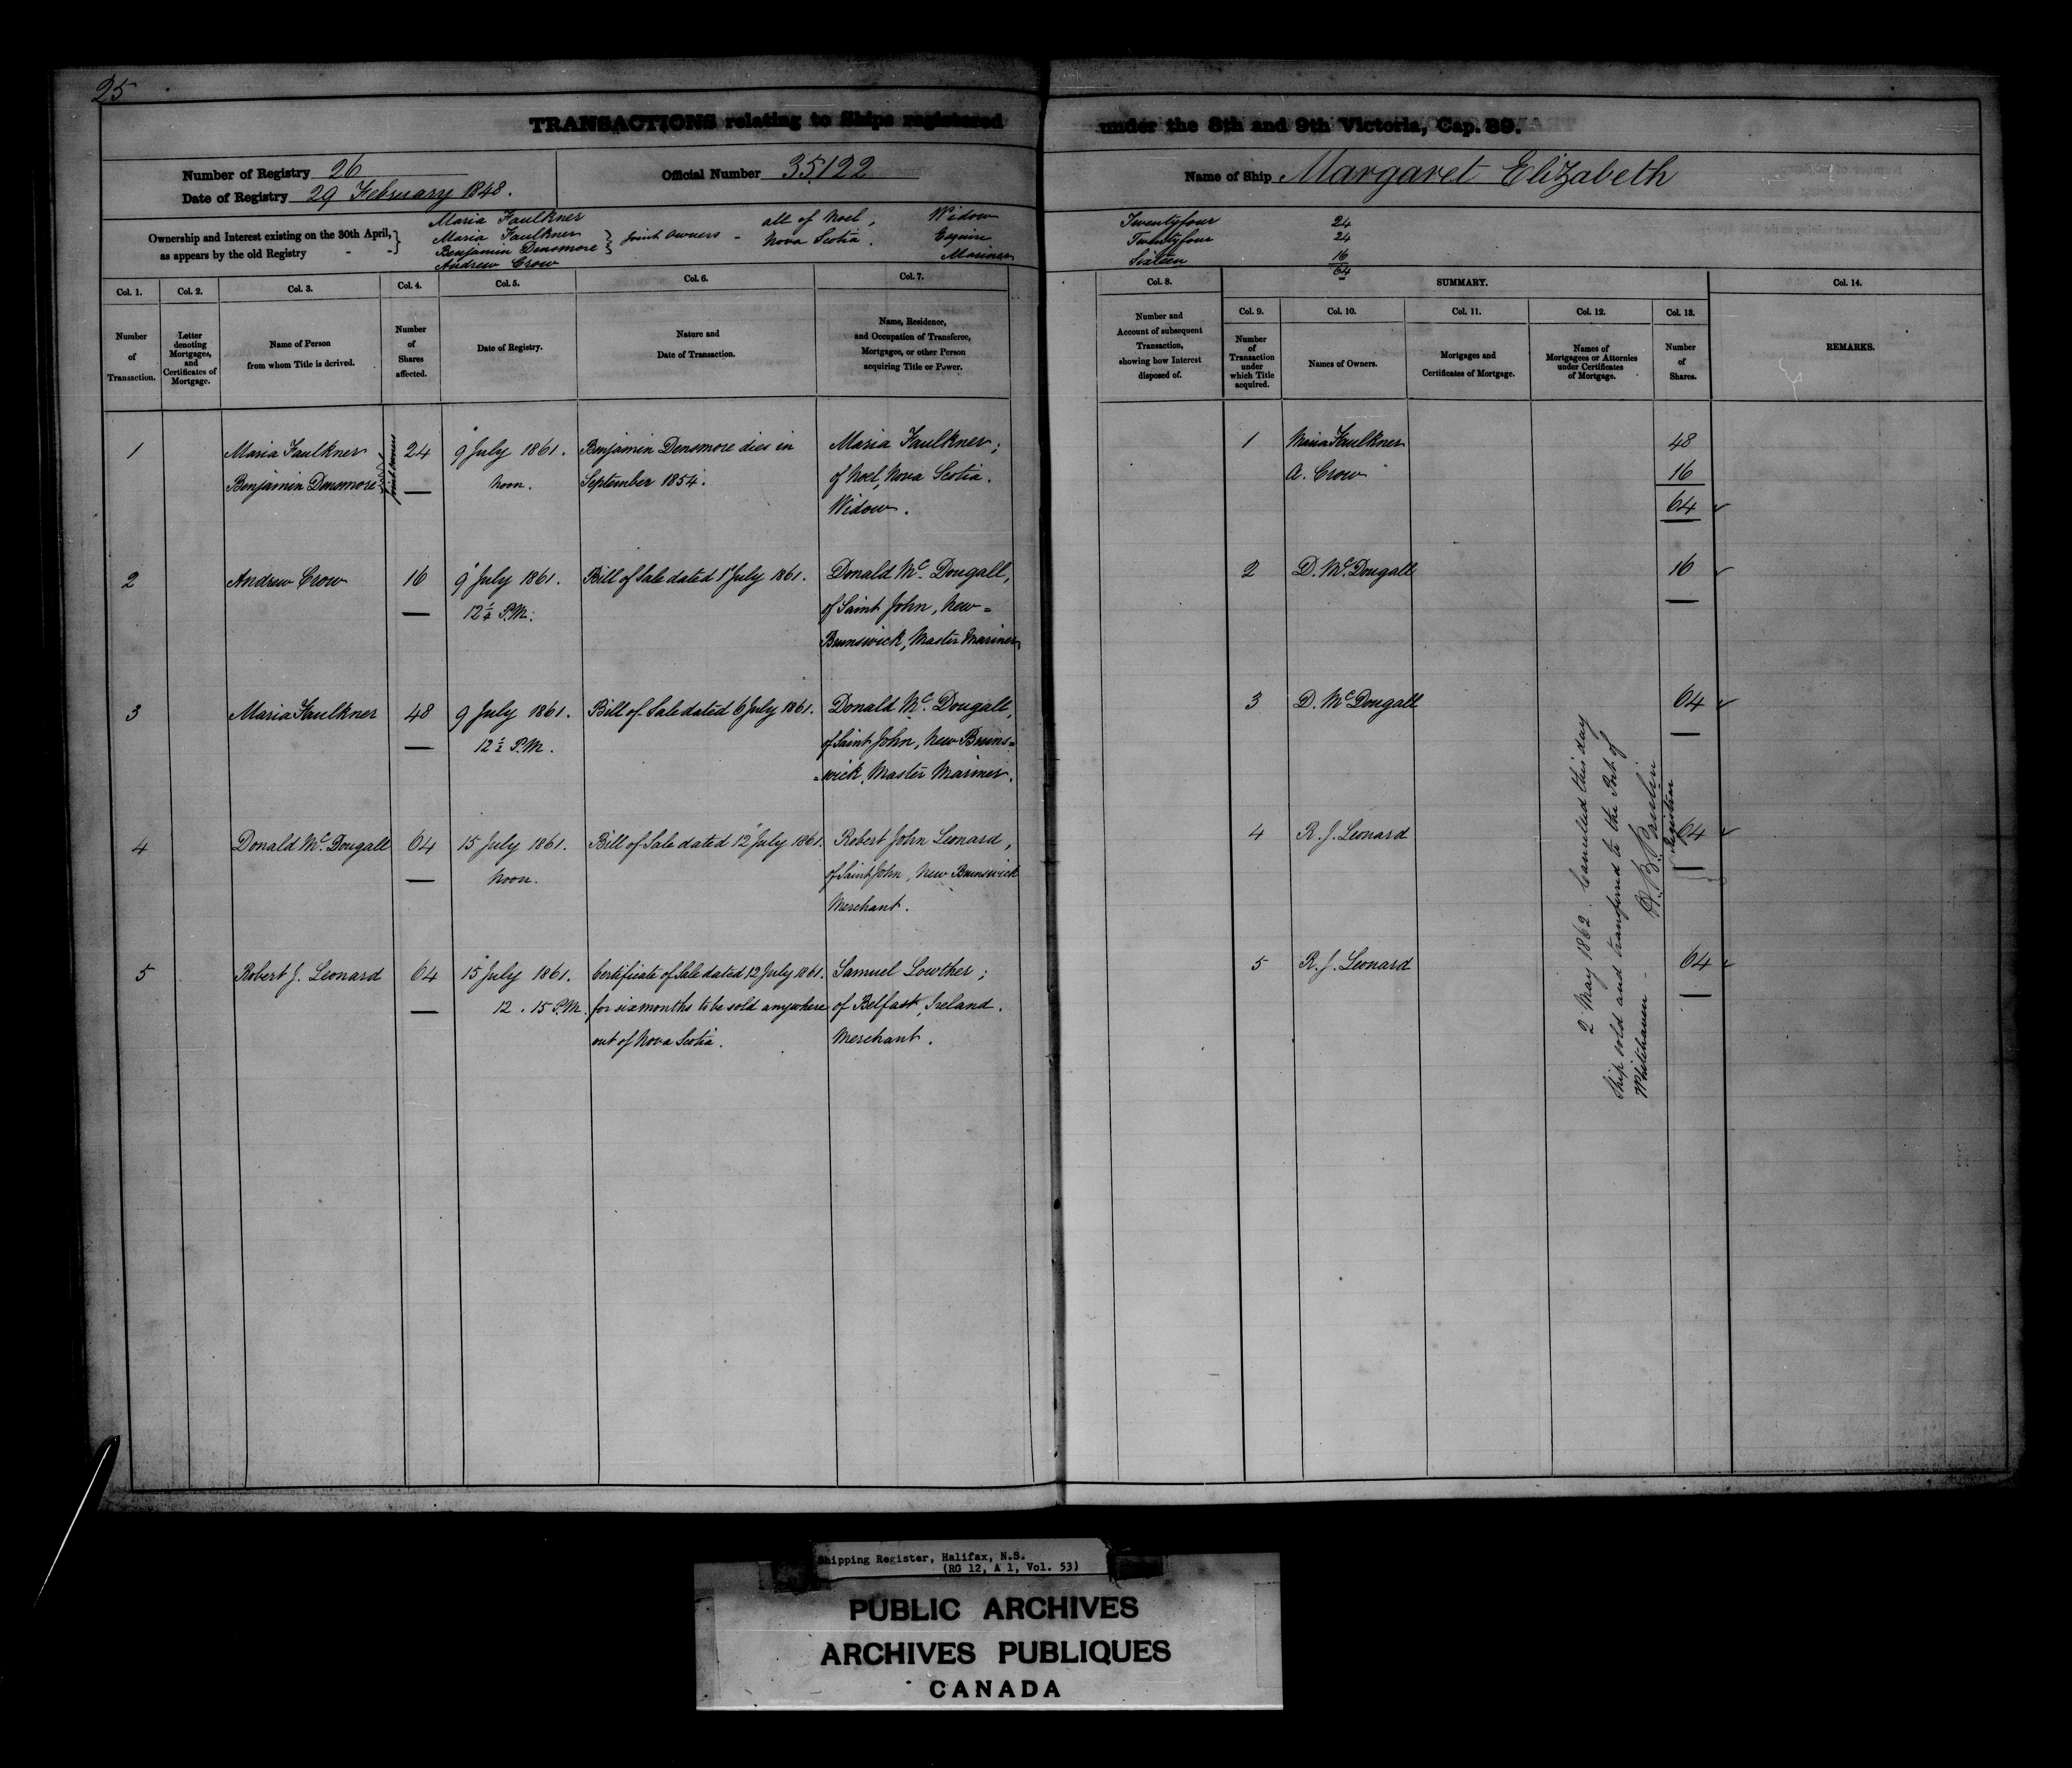 25
TRANSACTIONS relating to Ships registered under the 8th and 9th Victoria, Cap. 89.
Number of Registry 26
Date of Registry 29 February 1848.
Official Number 35122
Name of Ship Margaret Elizabeth
Ownership and Interest existing on the 30th April,
as appears by the old Registry - -
Maria Faulkner all of Noel, Widow Twentyfour 24
Maria Faulkner } Joint Owners - Nova Scotia. Esquire Twentyfour 24
Benjamin Densmore
Andrew Crow Mariner Sixteen 16
64
Col. 1.
Number
of
Transaction.
Col. 2.
Letter
denoting
Mortgages,
and
Certificates of
Mortgage.
Col. 3.
Name of Person
from whom Title is derived.
Col. 4.
Number
of
Shares
affected.
Col. 5.
Date of Registry.
Col. 6.
Nature and
Date of Transaction.
Col. 7.
Name, Residence,
and Occupation of Transferee,
Mortgagee, or other Person
acquiring Title or Power.
Col. 8.
Number and
Account of subsequent
Transaction,
showing how Interest
disposed of.
SUMMARY.
Col. 9.
Number
of
Transaction
under
which Title
acquired.
Col. 10.
Names of Owners.
Col. 11.
Mortgages and
Certificates of Mortgage.
Col. 12.
Names of
Mortgagees or Attornies
under Certificates
of Mortgage.
Col. 13.
Number
of
Shares.
Col. 14.
REMARKS.
1 Maria Faulkner 24 9 July 1861. Benjamin Densmore dies in Maria Faulkner,
Benjamin Densmore Joint Owners Noon. September 1854. of Noel, Nova Scotia.
Widow.
1 Maria Faulkner 48
A. Crow 16
64
2 Andrew Crow 16 9 July 1861. Bill of Sale dated 1 July 1861. Donald McDougall,
12¼ P.M. of Saint John, New=
Brunswick, Master Mariner
2 D. McDougall 16
3 Maria Faulkner 48 9 July 1861. Bill of Sale dated 6 July 1861. Donald McDougall,
12½ P.M. of Saint John, New Bruns=
=wick, Master Mariner.
3 D. McDougall 64
4 Donald McDougall 64 15 July 1861. Bill of Sale dated 12 July 1861. Robert John Leonard,
Noon. of Saint John, New Brunswick
Merchant.
4 R. J. Leonard 64
5 Robert J. Leonard 64 15 July 1861. Certificate of Sale dated 12 July 1861. Samuel Lowther;
12.15 P.M. for six months to be sold anywhere of Belfast, Ireland.
out of Nova Scotia. Merchant.
5 R. J. Leonard 64
2 May 1862. Cancelled this day
Ship sold and transferred to the Port of
Whitehaven -
Registrar
Shipping Register, Halifax, N.S.
(RG 12, A 1, Vol. 53)
PUBLIC ARCHIVES
ARCHIVES PUBLIQUES
CANADA